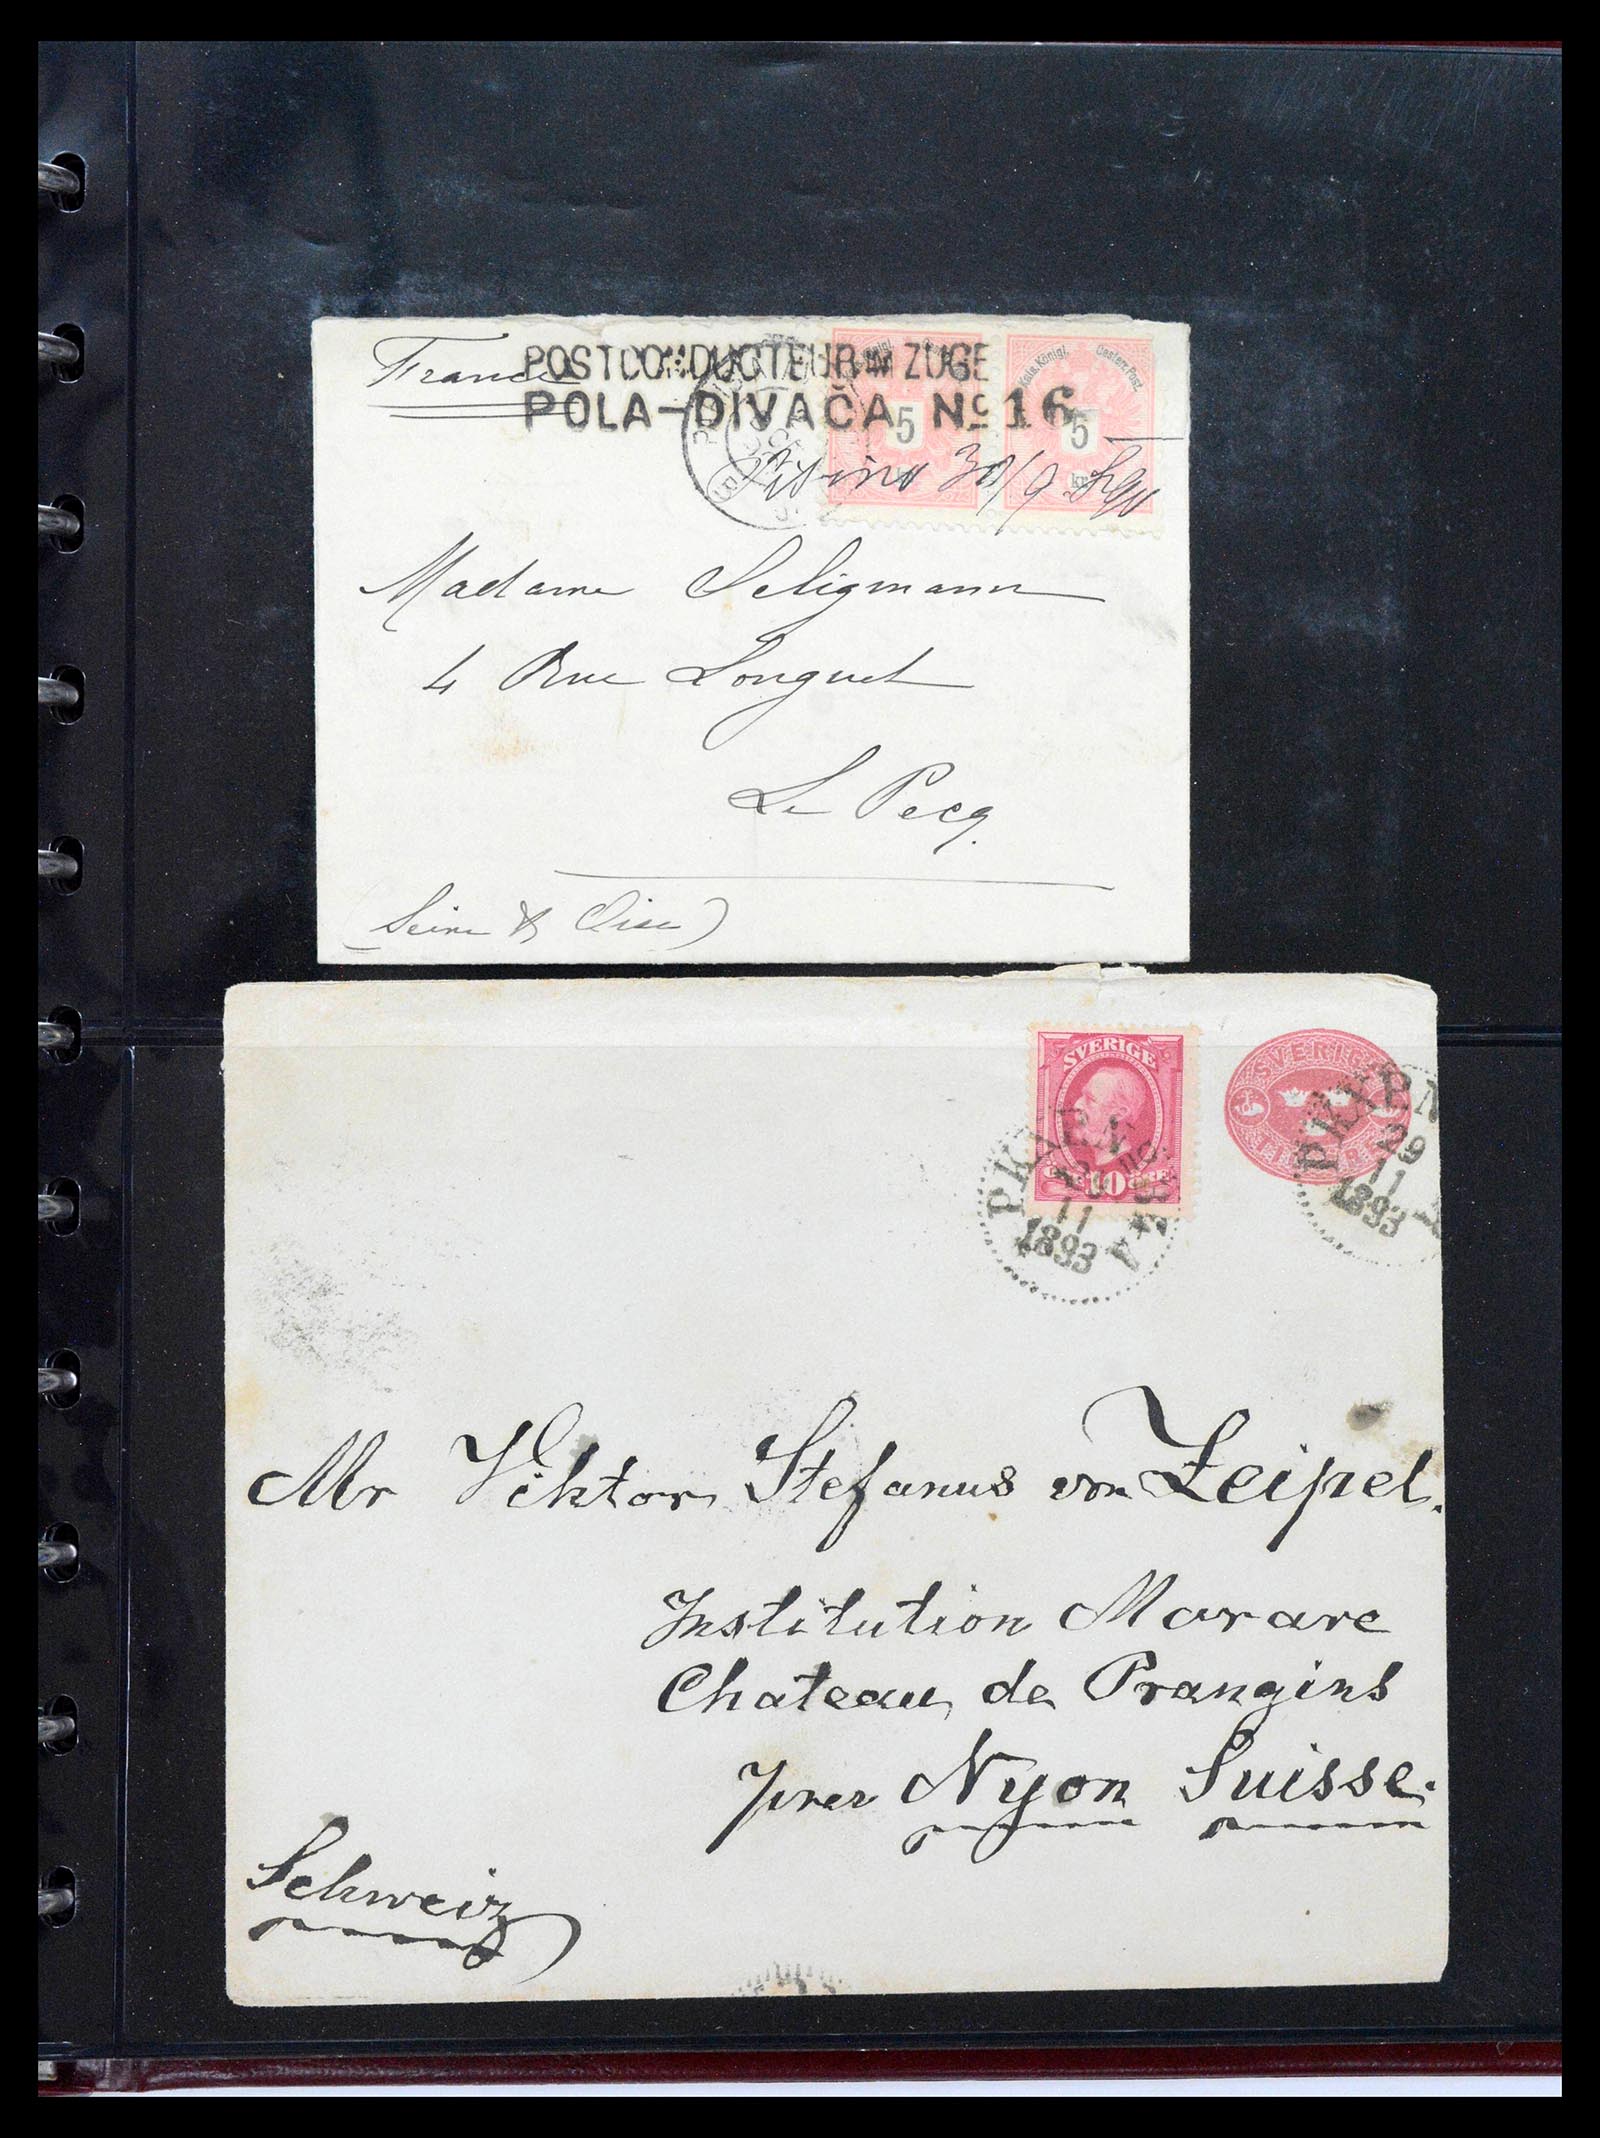 France
POSTCONDUCTEUR IM ZUGE
POLA-DIVAČA No 16
Kais. Königl. Oesterr. Post.
5 5
kr. kr.
Pisino 30/9
Madame Seligmann
4 Rue Longuet
Le Pecq.
(Seine & Oise)
SVERIGE
10
SVERIGE
PKXP N
29
11
1893
PKXP N
29
11
1893
Mr Viktor Stefanus von Zeipel.
Institution Morave
Chateau de Prangins
près Nyon Suisse.
Schweiz